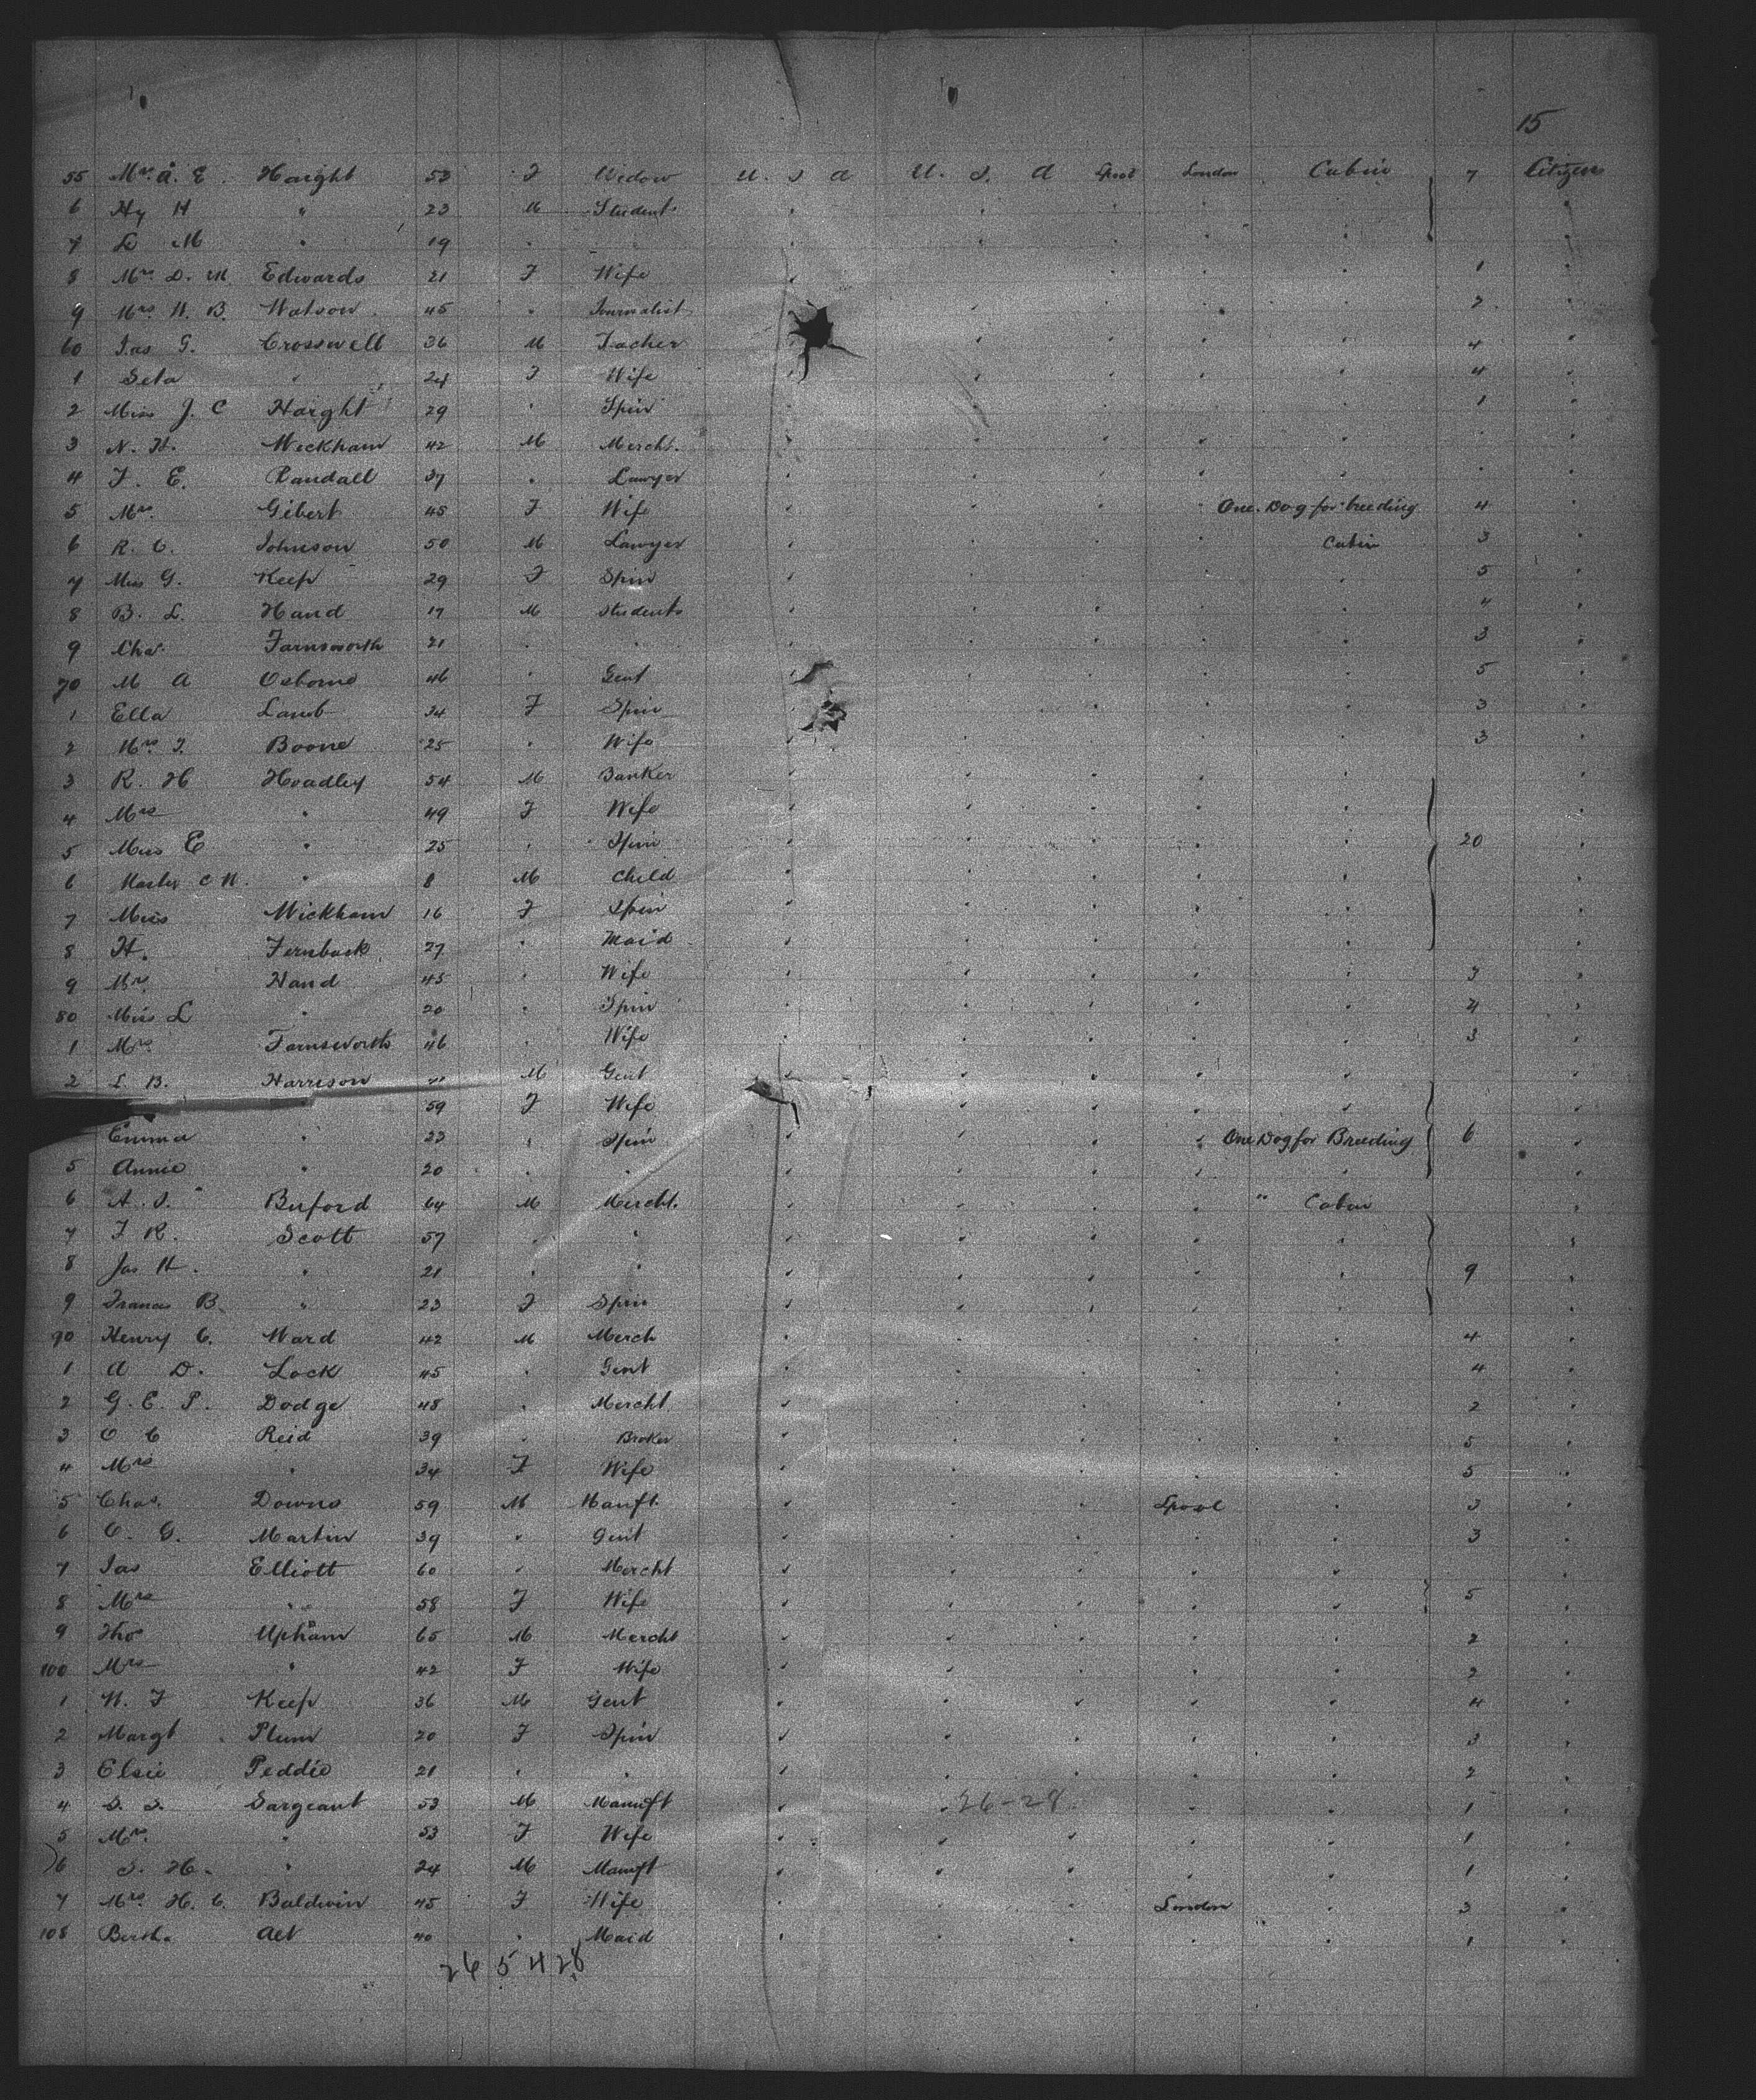 15
55 Mrs. A. E. Haight 52 F Widow U. S. A U. S. A Lpool London Cabin 7 Citizen
6 Hy H " 23 M Student
7 L M " 19 " "
8 Mrs D. M. Edwards 21 F Wife 1
9 Mrs. W. B. Watson 45 " Journalist 2
60 Jas G. Crosswell 36 M Teacher 4
1 Seta " 24 F Wife 4
2 Miss J. C Haight 29 " Spin 1
3 N. H. Wickham 42 M Mercht.
4 F. E. Randall 37 " Lawyer
5 Mrs. Gibert 45 F Wife One. Dog for breeding 4
6 R. C. Johnson 50 M Lawyer Cabin 3
7 Miss G. Keep 29 F Spin 5
8 B. L. Hand 17 M Student 4
9 Chas. Farnsworth 21 " " 3
70 M A Osborne 46 " Gent 5
1 Ella Lamb 34 F Spin 3
2 Mrs. T. Boone 25 " Wife 3
3 R. H Hoadley 54 M Banker
4 Mrs " 49 F Wife
5 Miss E " 25 " Spin 20
6 Master C W. " 8 M Child
7 Miss Wickham 16 F Spin
8 H. Fernback 27 " Maid
9 Mrs. Hand 45 " Wife 3
80 Miss L " 20 " Spin 4
1 Mrs. Farnsworth 46 " Wife 3
2 L. B. Harrison M Gent
59 F Wife
Emma " 23 " Spin One Dog for Breeding 6
5 Annie " 20 " "
6 A. S. Buford 64 M Mercht. " Cabin
7 F R. Scott 57 " "
8 Jas H. " 21 " " 9
9 Frances B. " 23 F Spin
90 Henry C. Ward 42 M Merch 4
1 A D. Lock 45 " Gent 4
2 G. E. P. Dodge 48 " Mercht 2
3 O C Reid 39 " Broker 5
4 Mrs " 34 F Wife 5
5 Chas. Downs 59 M Manft. Lpool 3
6 C. G. Martin 39 " Gent 3
7 Jas Elliott 60 " Mercht
8 Mrs " 58 F Wife 5
9 Thos Upham 65 M Mercht 2
100 Mrs " 42 F Wife 2
1 W. F Keep 36 M Gent 4
2 Margt Plum 20 F Spin 3
3 Elsie Peddie 21 " " 2
4 S. S. Sargeant 53 M Manuft 26-28 1
5 Mrs. " 53 F Wife 1
6 S. H. " 24 M Manuft 1
7 Mrs H. C. Baldwin 45 F Wife London 3
108 Bertha Alt 40 " Maid 1
26 5 4 28